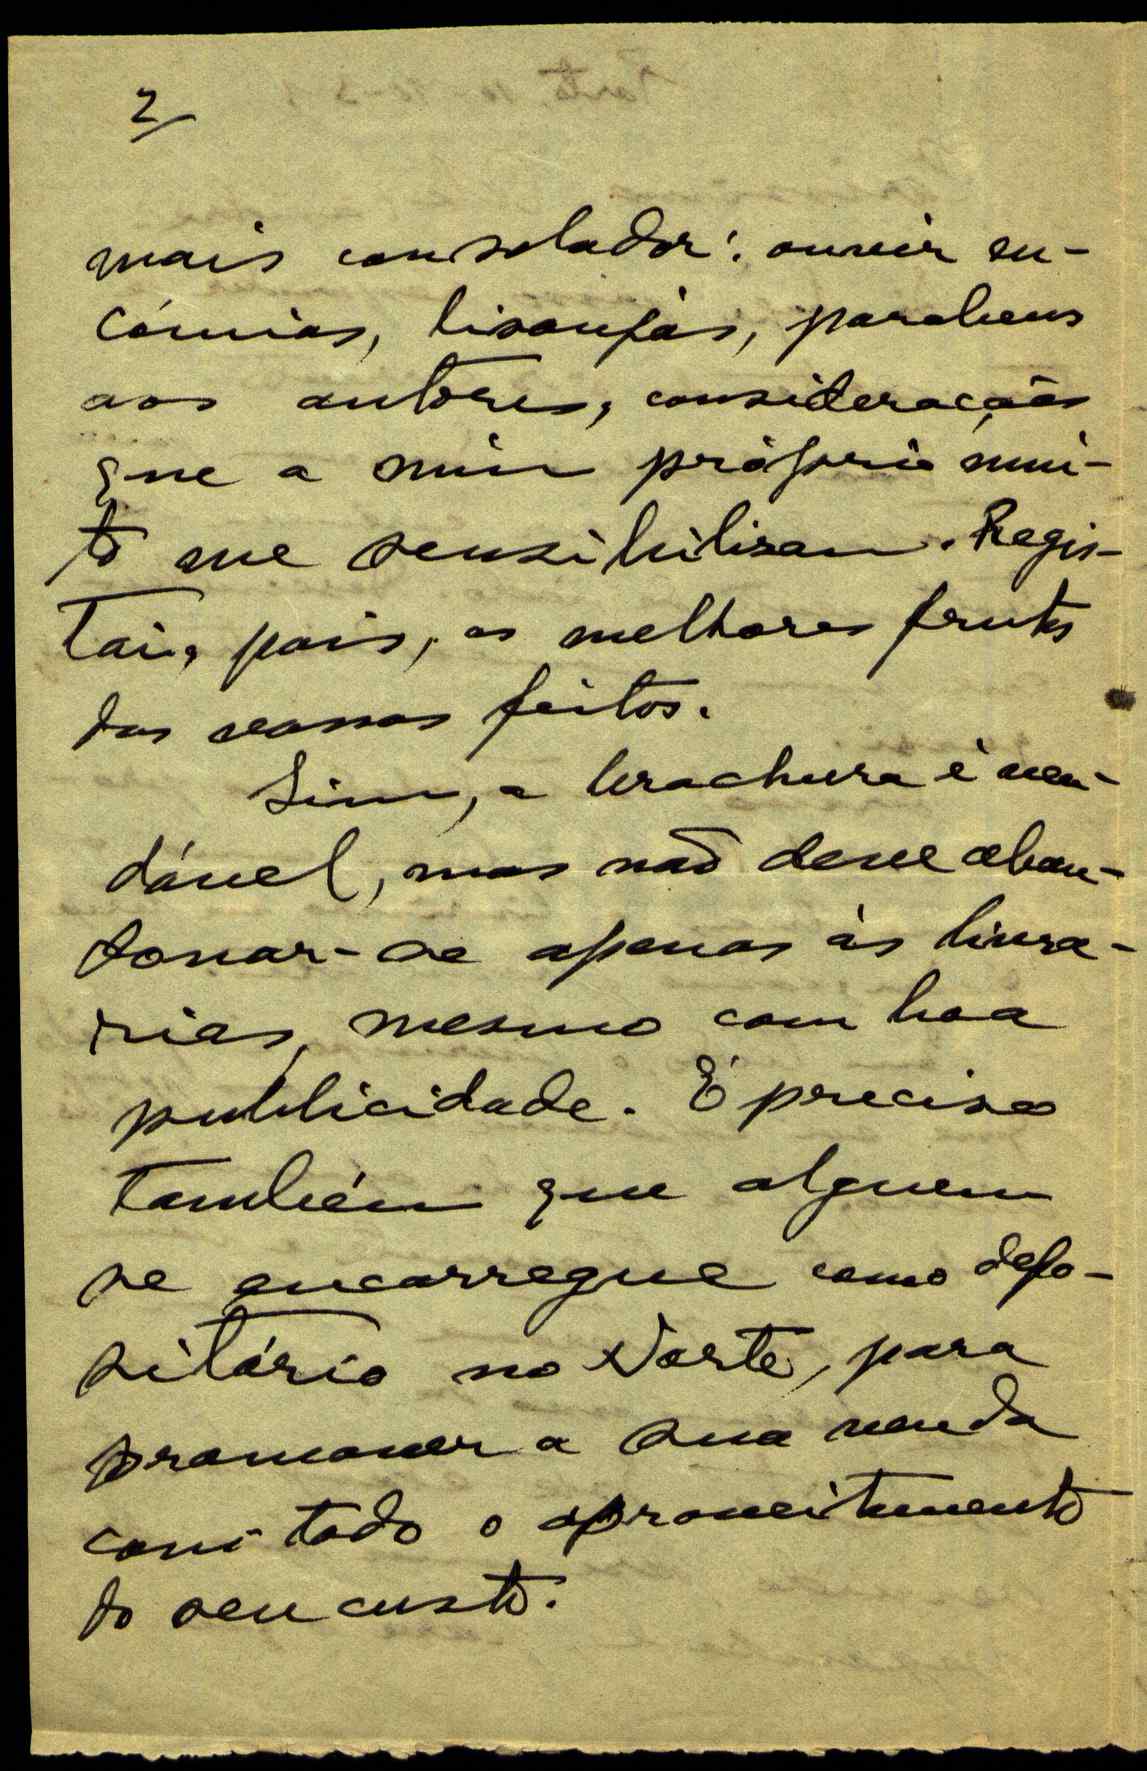 2/
mais consolador: ouvir en-
cómios, lisonjas, parabens
aos autores, considerações
que a mim próprio mui-
to me sensibilisam. Regis-
tai, pois, os melhores frutos
dos vossos feitos.
Sim, a brochura é ven-
dável, mas não deve aban-
donar-se apenas às livra-
rias, mesmo com boa
publicidade. É preciso
também que alguem
se encarregue como depo-
sitário no Norte, para
promover a sua venda
com todo o aproveitamento
do seu custo.